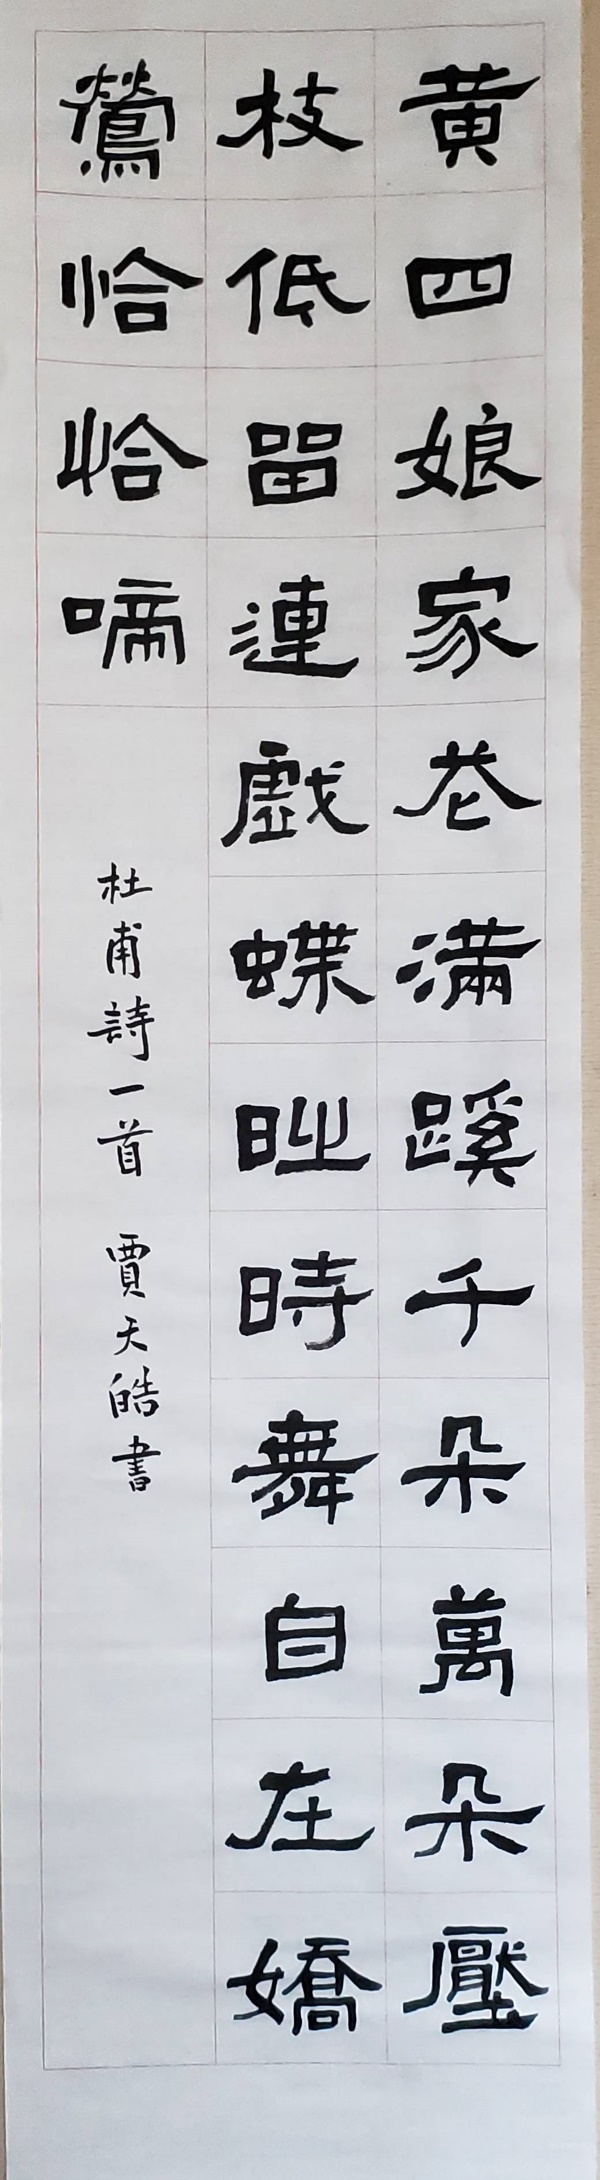 黄四娘家花滿蹊千朵萬朵壓
枝低留連戲蝶時時舞自在嬌
鶯恰恰啼
杜甫詩一首 賈天皓書